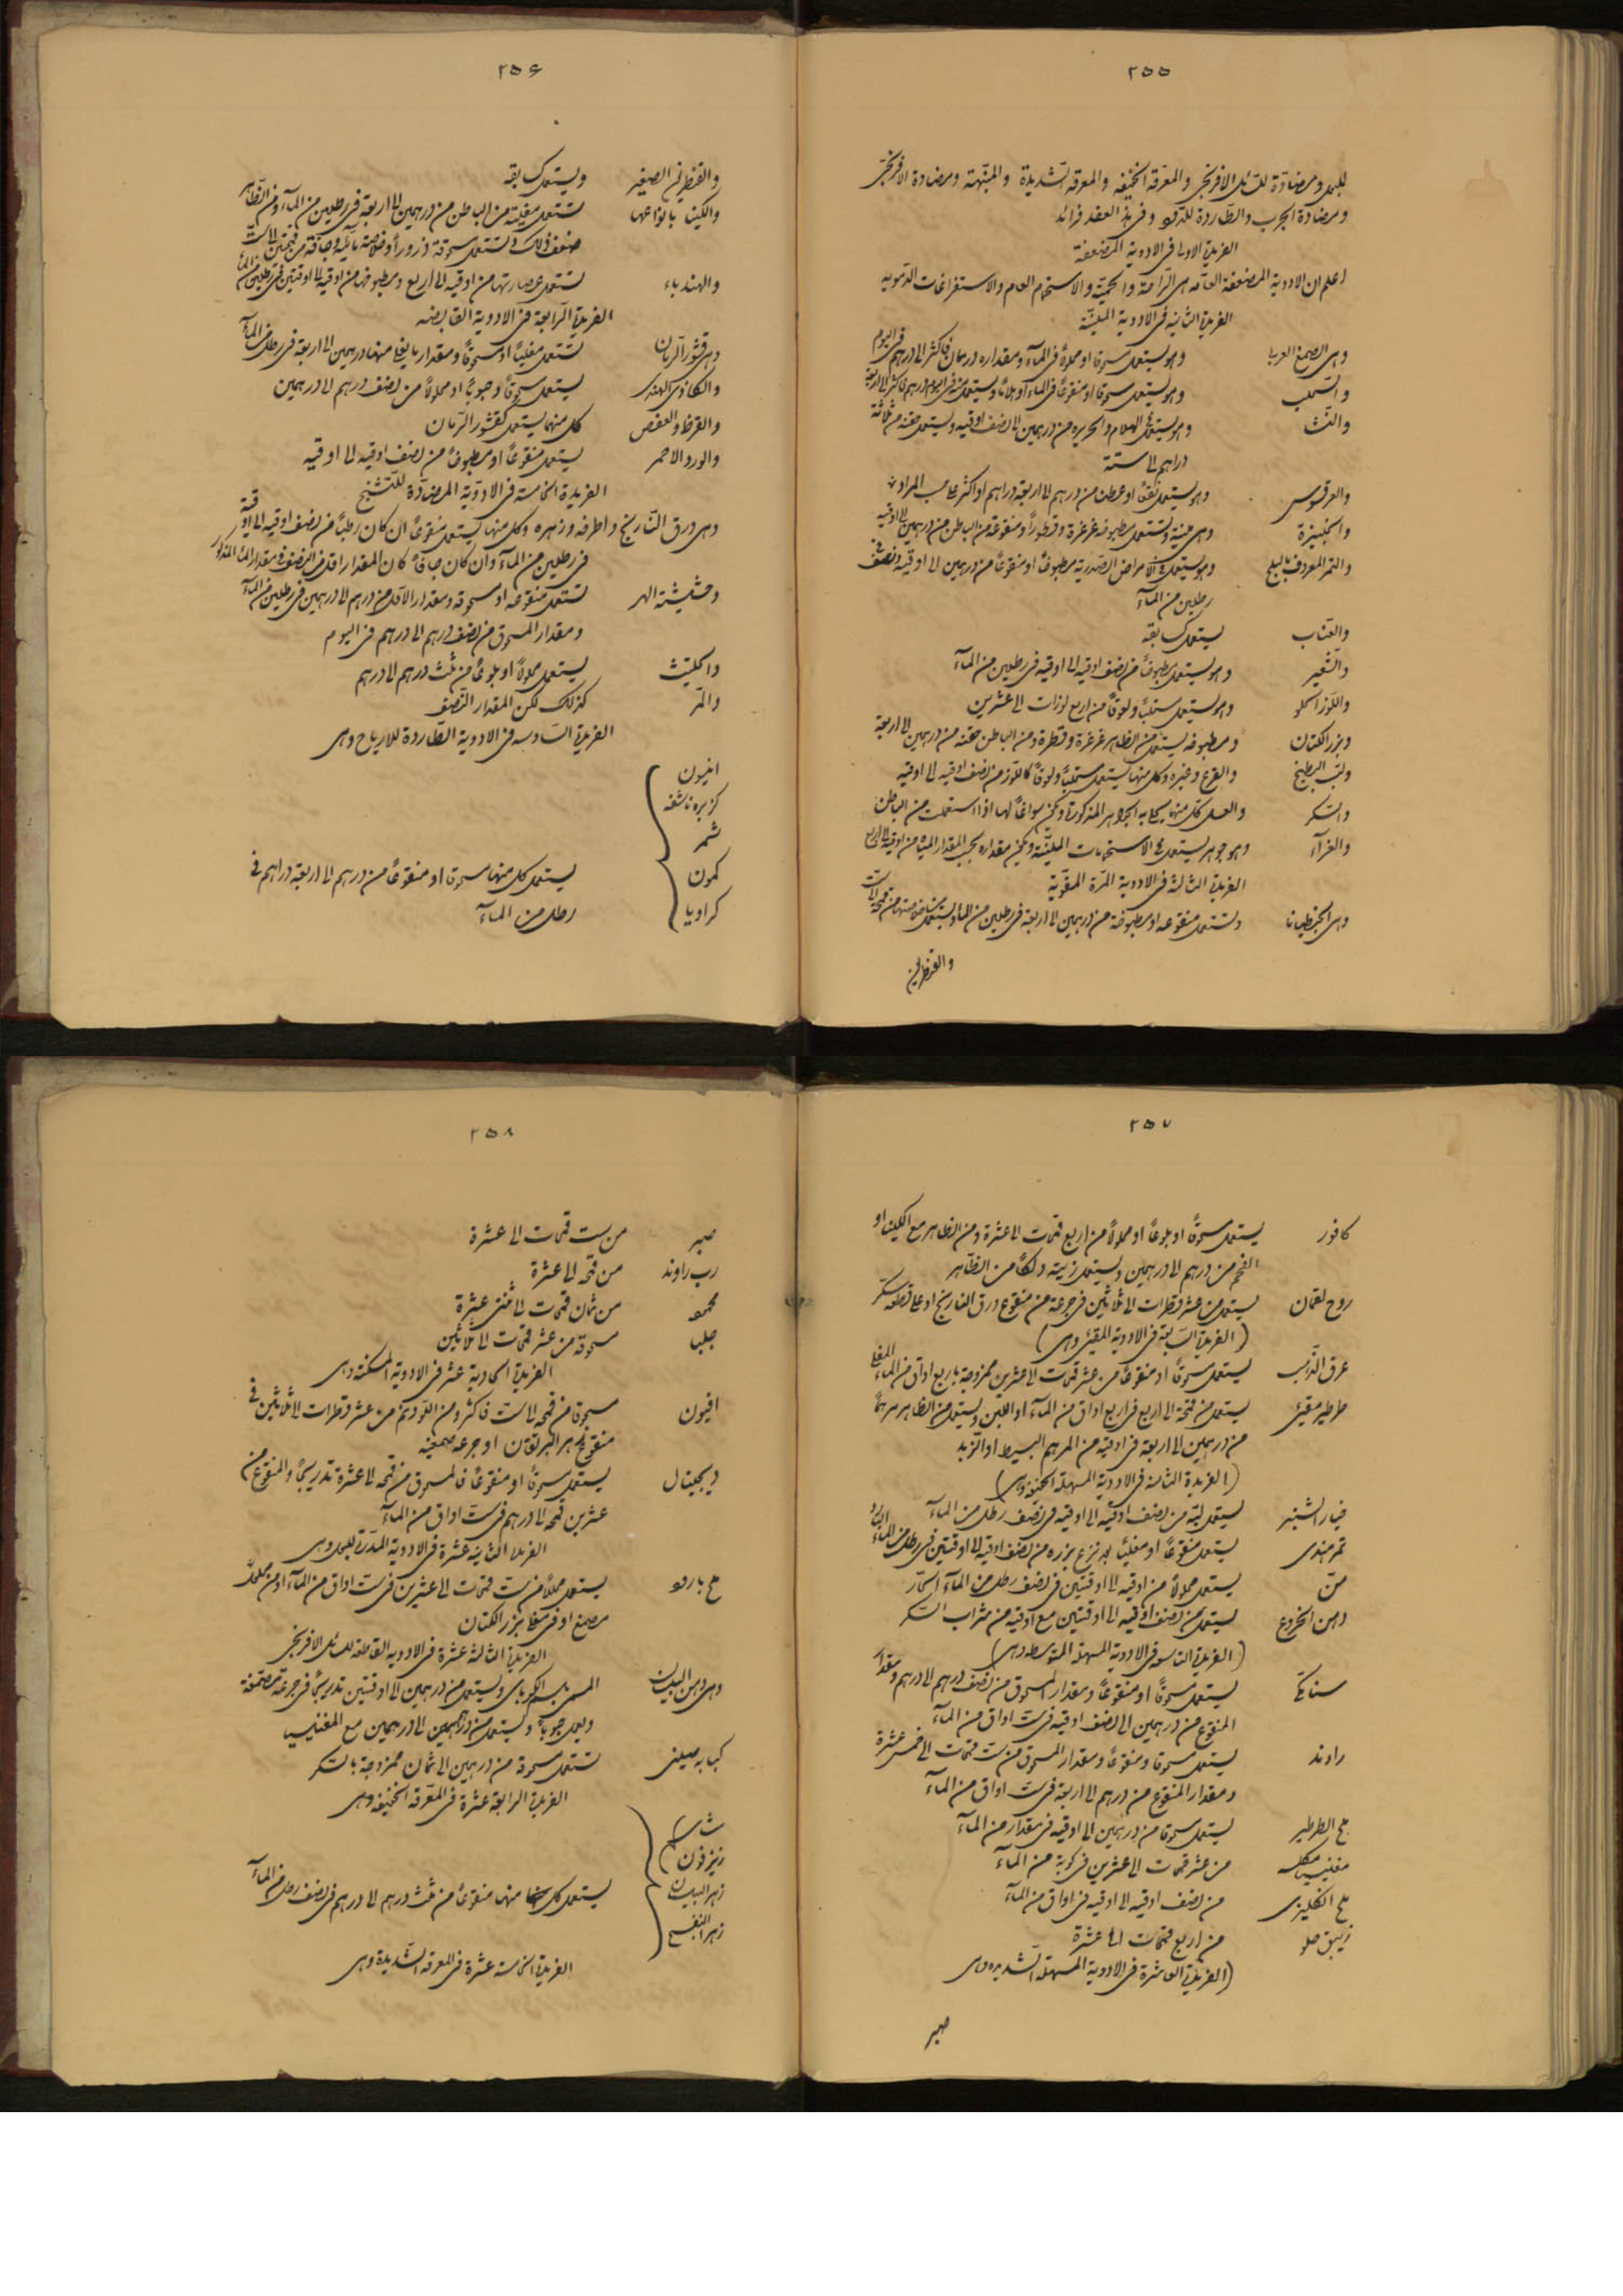 ٢٥٥
للبول ومضادة للسائل الافرنجى والمعرقة الخفيفه والمعرقه الشديدة والمنبهة ومضادة الافرنجى
ومضادة الجرب والطاردة للدود وفى هذ العقد فرائد
الفريدة الاولى فى الادوية المضعفة
اعلم ان الادوية المضعفة العامه هى الراحة والحمية والاستحمام العام والاستفراغات الدمويه
الفريدة الثانيه فى الادوية الملينة
وهى الصمغ العربى وهو يستعمل مسحوقا او محلولاً فى المآء ومقداره درهمان فاكثر الى درهم فى اليوم
والسحلب وهو يستعمل مسحوقا او منقوعاً فى المآء او هلاماً ويستعمل منه فى اليوم درهم فاكثر الى اربعة
والنشا وهو يستعمل كالهلام والحريره من درهمين الى نصف اوقيه ويستعمل حقنه من ثلاثة
دراهم الى ستة
والعرقسوس وهو يستعمل نقعاً او من درهم الى اربعة دراهم او اكثر على حسب المراد
والخبيزة وهى ملينة وتستعمل مطبوخه غرغرة وقطوراً ومنقوعة من الباطن من درهمين الى اوقيه
والتمر المعروف بالبلح وهو يستعمل فى الامراض الصدرية مطبوخاً او منقوعاً من درهمين الى اوقيه ونصف فى
رطلين من المآء
والعناب يستعمل كسابقه
والشعير وهو يستعمل مطبوخاً من نصف اوقيه الى اوقيه فى رطلين من المآء
واللوز الحلو وهو يستعمل مستحلباً ولعوقاً من اربع لوزات الى عشرين
وبزر الكتان ومطبوخه يستعمل من الظاهر غرغرة وقطرة ومن الباطن حقنه من درهمين الى اربعة
ولب البطيخ والقرع وغيره وكل منها يستعمل مستحلباً ولعوقاً كاللوز من نصف اوقيه الى اوقيه
والسكر والعسل كل منهما يحلى به الجواهر المذكورة ويكون سواغاً لها اذا استعملت من الباطن
والغرآء وهو جوهر يستعمل فى الاستحمامات الملينة ويكون مقداره بحسب المقدار المياه من اوقيه الى اربع
الفريدة الثالثة فى الادوية المرة المقوية
وهى الجنطيانا وتستعمل منقوعه او مطبوخة من درهمين الى اربعة فى رطلين من المآء ويستعمل خلاصتها من قمحة الى ست
والقنطريون
٢٥٦
والقنطريون الصغير ويستعمل كسابقه
والكينا بانواعها تستعمل مغلية من الباطن من درهمين الى اربعة فى رطلين من المآء ومن الظاهر
ضعف ذلك وتستعمل مسحوقة ذروراً وخلاصة مائية وجافة من قمحتين الى ست
والهندباء تستعمل عصارتها من اوقيه الى اربع ومطبوخها من اوقيه الى اوقيتين فى رطلين من المآء
الفريدة الرابعة فى الادوية القابضه
وهى قشور الرمان تستعمل مغلياً او مسحوقاً ومقدار ما يغلى منها درهمين الى اربعة فى رطل من المآء
والكاد الهندى يستعمل مسحوقاً وحبوباً او محلولاً من نصف درهم الى درهمين
والقرظ والعفص كل منهما يستعمل كقشور الرمان
والورد الاحمر يستعمل منقوعاً او مطبوخاً من نصف اوقيه الى اوقيه
الفريدة الخامسة فى الادوية المضادة للتشنج
وهى ورق النارنج واطرافه وزهره وكل منها يستعمل منقوعاً ان كان رطباً من نصف اوقيه الى اوقية
فى رطلين من المآء وان كان جافاً كان المقدار اقل من النصف فى مقدار المآء المذكور
وحشيشة الهر تستعمل منقوعه او مسحوقه ومقدار الاول من درهم الى درهمين فى رطلين من المآء
ومقدار المسحوق من نصف درهم الى درهم فى اليوم
والحلتيت يستعمل محلولاً او بلوعاً من ثلث درهم الى درهم
والمر كذلك لكن المقدار النصف
الفريدة السادسه فى الادوية الطاردة للارياح وهى
انيسون
كزبره ناشفه
شمر
كمون
كراويا
يستعمل كل منها مسحوقا او منقوعاً من درهم الى اربعة دراهم فى
رطل من المآء
٢٥٧
كافور يستعمل مسحوقاً او بلوعاً او محلولاً من اربع قمحات الى عشرة ومن الظاهر مع الكينا او
الفحم من درهم الى درهمين ويستعمل زيته دلكاً من الظاهر
روح لقمان يستعمل من عشر قطرات الى ثلاثين فى جرعة من منقوع ورق النارنج او على قطعه سكر
(الفريدة السابعة فى الادوية المقيئ وهى)
عرق الذهب يستعمل مسحوقاً او منقوعاً من عشر قمحات الى عشرين ممزوجة باربع اواق من المآء المغلى
طرطير مقيئ يستعمل من قمحة الى اربع فى اربع اواق من المآء او اللبن ويستعمل من الظاهر مرهماً
من درهمين الى اربعة فى اوقية من المرهم البسيط او الزبد
(الفريدة الثامنه فى الادوية المسهلة الخفيفه وهى)
خيار الشنبر يستعمل لبه من نصف اوقيه الى اوقيه فى نصف رطل من المآء
تمر هندى يستعمل منقوعاً او مغلياً بعد نزع بزره من نصف اوقيه الى اوقيتين فى رطل من المآء البارد
من يستعمل محلولاً من اوقيه الى اوقيتين فى نصف رطل من المآء الحار
دهن الخروع يستعمل من نصف اوقيه الى اوقيتين مع اوقيه من شراب السكر
(الفريدة التاسعه فى الادوية المسهلة المتوسطه وهى)
سنامكى يستعمل مسحوقاً او منقوعاً ومقدار المسحوق من نصف درهم الى درهم ومقدار
المنقوع من درهمين الى نصف اوقيه فى ست اواق من المآء
راوند يستعمل مسحوقا ومنقوعاً ومقدار المسحوق من ست قمحات الى خمس عشرة
ومقدار المنقوع من درهم الى اربعة فى ست اواق من المآء
ملح الطرطير يستعمل مسحوقا من درهمين الى اوقيه فى مقدار من المآء
مغنيسيا مكلسه من عشر قمحات الى عشرين فى كوبة من المآء
ملح انكليزى من نصف اوقيه الى اوقيه فى اواق من المآء
زئبق حلو من اربع قمحات الى عشرة
(الفريدة العاشرة فى الادوية المسهلة الشديده وهى
صبر
٢٥٨
صبر من ست قمحات الى عشرة
رب راوند من قمحه الى عشرة
محموده من ثمان قمحات الى ثنتى عشرة
جلبا مسحوقه من عشر قمحات الى ثلاثين
الفريدة الحادية عشر فى الادوية المسكنة وهى
افيون مسحوقا من قمحه الى ست فاكثر ومن اللودنم من عشر قطرات الى ثلاثين فى
منقوع زهر البرتقان او جرعه صمغيه
ديجيتال يستعمل مسحوقاً او منقوعاً فالمسحوق من قمحه الى عشرة تدريجاً والمنقوع من
عشرين قمحه الى درهم فى ست اواق من المآء
الفريدة الثانية عشرة فى الادوية المدرة للبول وهى
ملح بارود يستعمل محلولاً من ست قمحات الى عشرين فى ست اواق من المآء او من محلول
صمغ او فى مغلى بزر الكتان
الفريدة الثالثة عشرة فى الادويه القاطعة للسائل الافرنجى
وهى دهن البلسان المسمى بلسم الكوباى ويستعمل من درهمين الى اوقيتين تدريجاً فى جرعة مصمغة
ويعمل حبوباً ويستعمل من درهمين الى درهمين مع المغنيسيا
كبابه صينى تستعمل مسحوقة من درهمين الى ثمان ممزوجة بالسكر
الفريدة الرابعة عشرة فى المعرقه الخفيفه وهى
شاى
زيزفون
زهر البيلسان
زهر البنفسج
يستعمل كل منها منقوعاً من ثلث درهم الى درهم فى نصف رطل من المآء
الفريدة الخامسة عشرة فى المعرقه الشديدة وهى